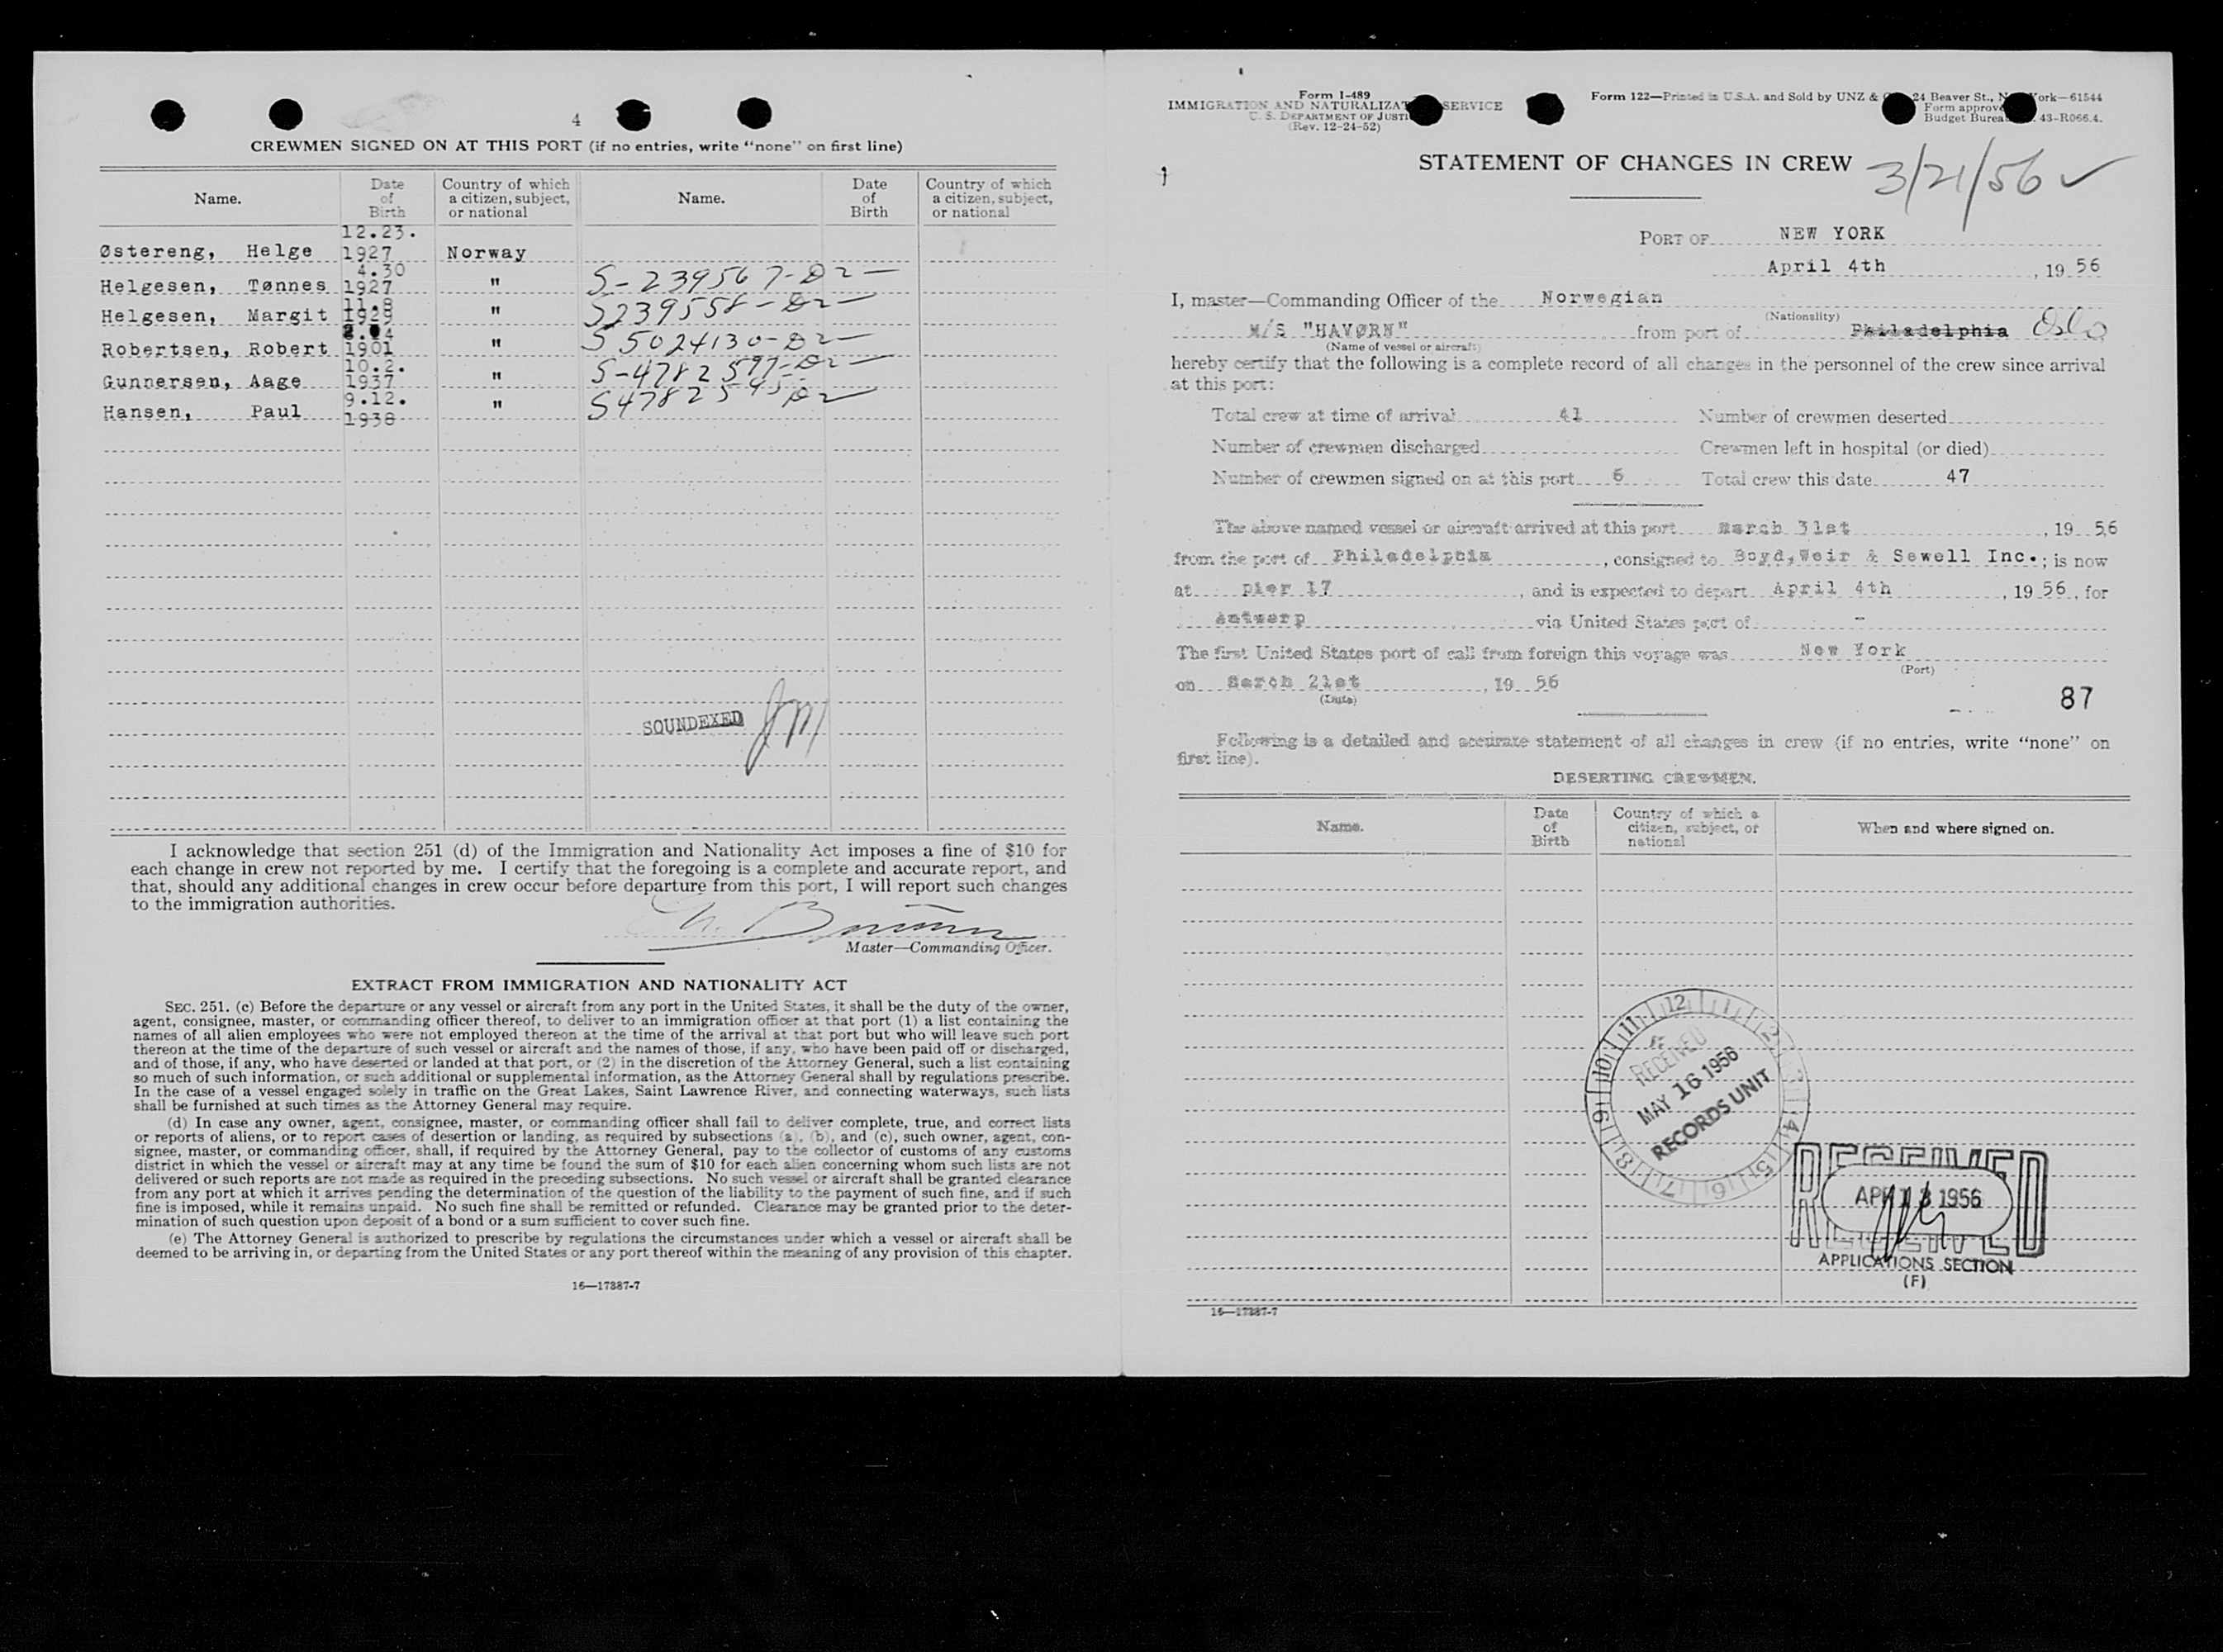 4
CREWMEN SIGNED ON AT THIS PORT (if no entries, write "none" on first line)
Name. Date of Birth Country of which a citizen, subject, or national Name. Date of Birth Country of which a citizen, subject, or national
Østereng, Helge 12.23. 1927 Norway
Helgesen, Tønnes 4.30 1927 " S-239567-D2-
Helgesen, Margit 11.8 1929 " S239558-D2-
Robertsen, Robert 1901 " S5024130-D2-
Gunnersen, Aage 10.2. 1937 " S-4782597-D2-
Hansen, Paul 9.12. 1938 " S4782595-D2
SOUNDEXED
I acknowledge that section 251 (d) of the Immigration and Nationality Act imposes a fine of $10 for
each change in crew not reported by me. I certify that the foregoing is a complete and accurate report, and
that, should any additional changes in crew occur before departure from this port, I will report such changes
to the immigration authorities.
Master—Commanding Officer.
EXTRACT FROM IMMIGRATION AND NATIONALITY ACT
SEC. 251. (c) Before the departure or any vessel or aircraft from any port in the United States, it shall be the duty of the owner,
agent, consignee, master, or commanding officer thereof, to deliver to an immigration officer at that port (1) a list containing the
names of all alien employees who were not employed thereon at the time of the arrival at that port but who will leave such port
thereon at the time of the departure of such vessel or aircraft and the names of those, if any, who have been paid off or discharged,
and of those, if any, who have deserted or landed at that port, or (2) in the discretion of the Attorney General, such a list containing
so much of such information, or such additional or supplemental information, as the Attorney General shall by regulations prescribe.
In the case of a vessel engaged solely in traffic on the Great Lakes, Saint Lawrence River, and connecting waterways, such lists
shall be furnished at such times as the Attorney General may require.
(d) In case any owner, agent, consignee, master, or commanding officer shall fail to deliver complete, true, and correct lists
or reports of aliens, or to report cases of desertion or landing, as required by subsections (a), (b), and (c), such owner, agent, con-
signee, master, or commanding officer, shall, if required by the Attorney General, pay to the collector of customs of any customs
district in which the vessel or aircraft may at any time be found the sum of $10 for each alien concerning whom such lists are not
delivered or such reports are not made as required in the preceding subsections. No such vessel or aircraft shall be granted clearance
from any port at which it arrives pending the determination of the question of the liability to the payment of such fine, and if such
fine is imposed, while it remains unpaid. No such fine shall be remitted or refunded. Clearance may be granted prior to the deter-
mination of such question upon deposit of a bond or a sum sufficient to cover such fine.
(e) The Attorney General is authorized to prescribe by regulations the circumstances under which a vessel or aircraft shall be
deemed to be arriving in, or departing from the United States or any port thereof within the meaning of any provision of this chapter.
16—17887-7
Form I-489
IMMIGRATION AND NATURALIZAT SERVICE
U. S. DEPARTMENT OF JUSTI
(Rev. 12-24-52)
Form 122—Printed in U.S.A. and Sold by UNZ & 24 Beaver St., N York—61544
Form approve
Budget Burea 43-R066.4.
STATEMENT OF CHANGES IN CREW 3/21/56 ✓
PORT OF NEW YORK
April 4th, 19 56
I, master—Commanding Officer of the Norwegian
(Nationality)
M/S "HAVØRN" from port of Philadelphia Oslo
(Name of vessel or aircraft)
hereby certify that the following is a complete record of all changes in the personnel of the crew since arrival
at this port:
Total crew at time of arrival 41 Number of crewmen deserted
Number of crewmen discharged Crewmen left in hospital (or died)
Number of crewmen signed on at this port 6 Total crew this date 47
The above named vessel or aircraft arrived at this port March 31st, 19 56
from the port of Philadelphia, consigned to Boyd, Weir & Sewell Inc.; is now
at pier 17, and is expected to depart April 4th, 19 56, for
Antwerp via United States port of -
The first United States port of call from foreign this voyage was New York
(Port)
on March 21st, 19 56
(Date)
87
Following is a detailed and accurate statement of all changes in crew (if no entries, write "none" on
first line).
DESERTING CREWMEN.
Name. Date of Birth Country of which a citizen, subject, or national When and where signed on.
12 1 2 3 4 5 6 7 8 9 10 11
RECEIVED
MAY 16 1956
RECORDS UNIT
RECEIVED
APR 13 1956
RECEIVED
APPLICATIONS SECTION
(F)
16—17887-7